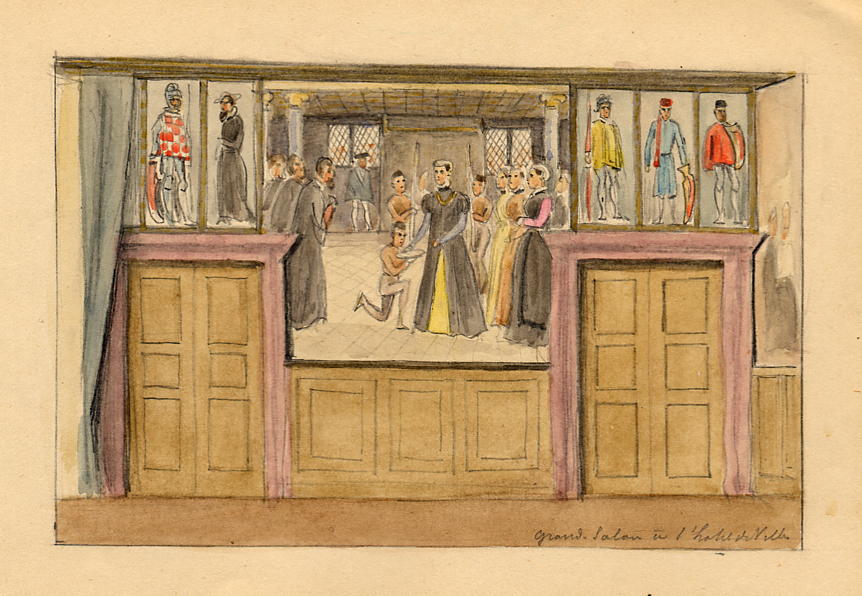 Grand. Salon à l'Hotel de Ville